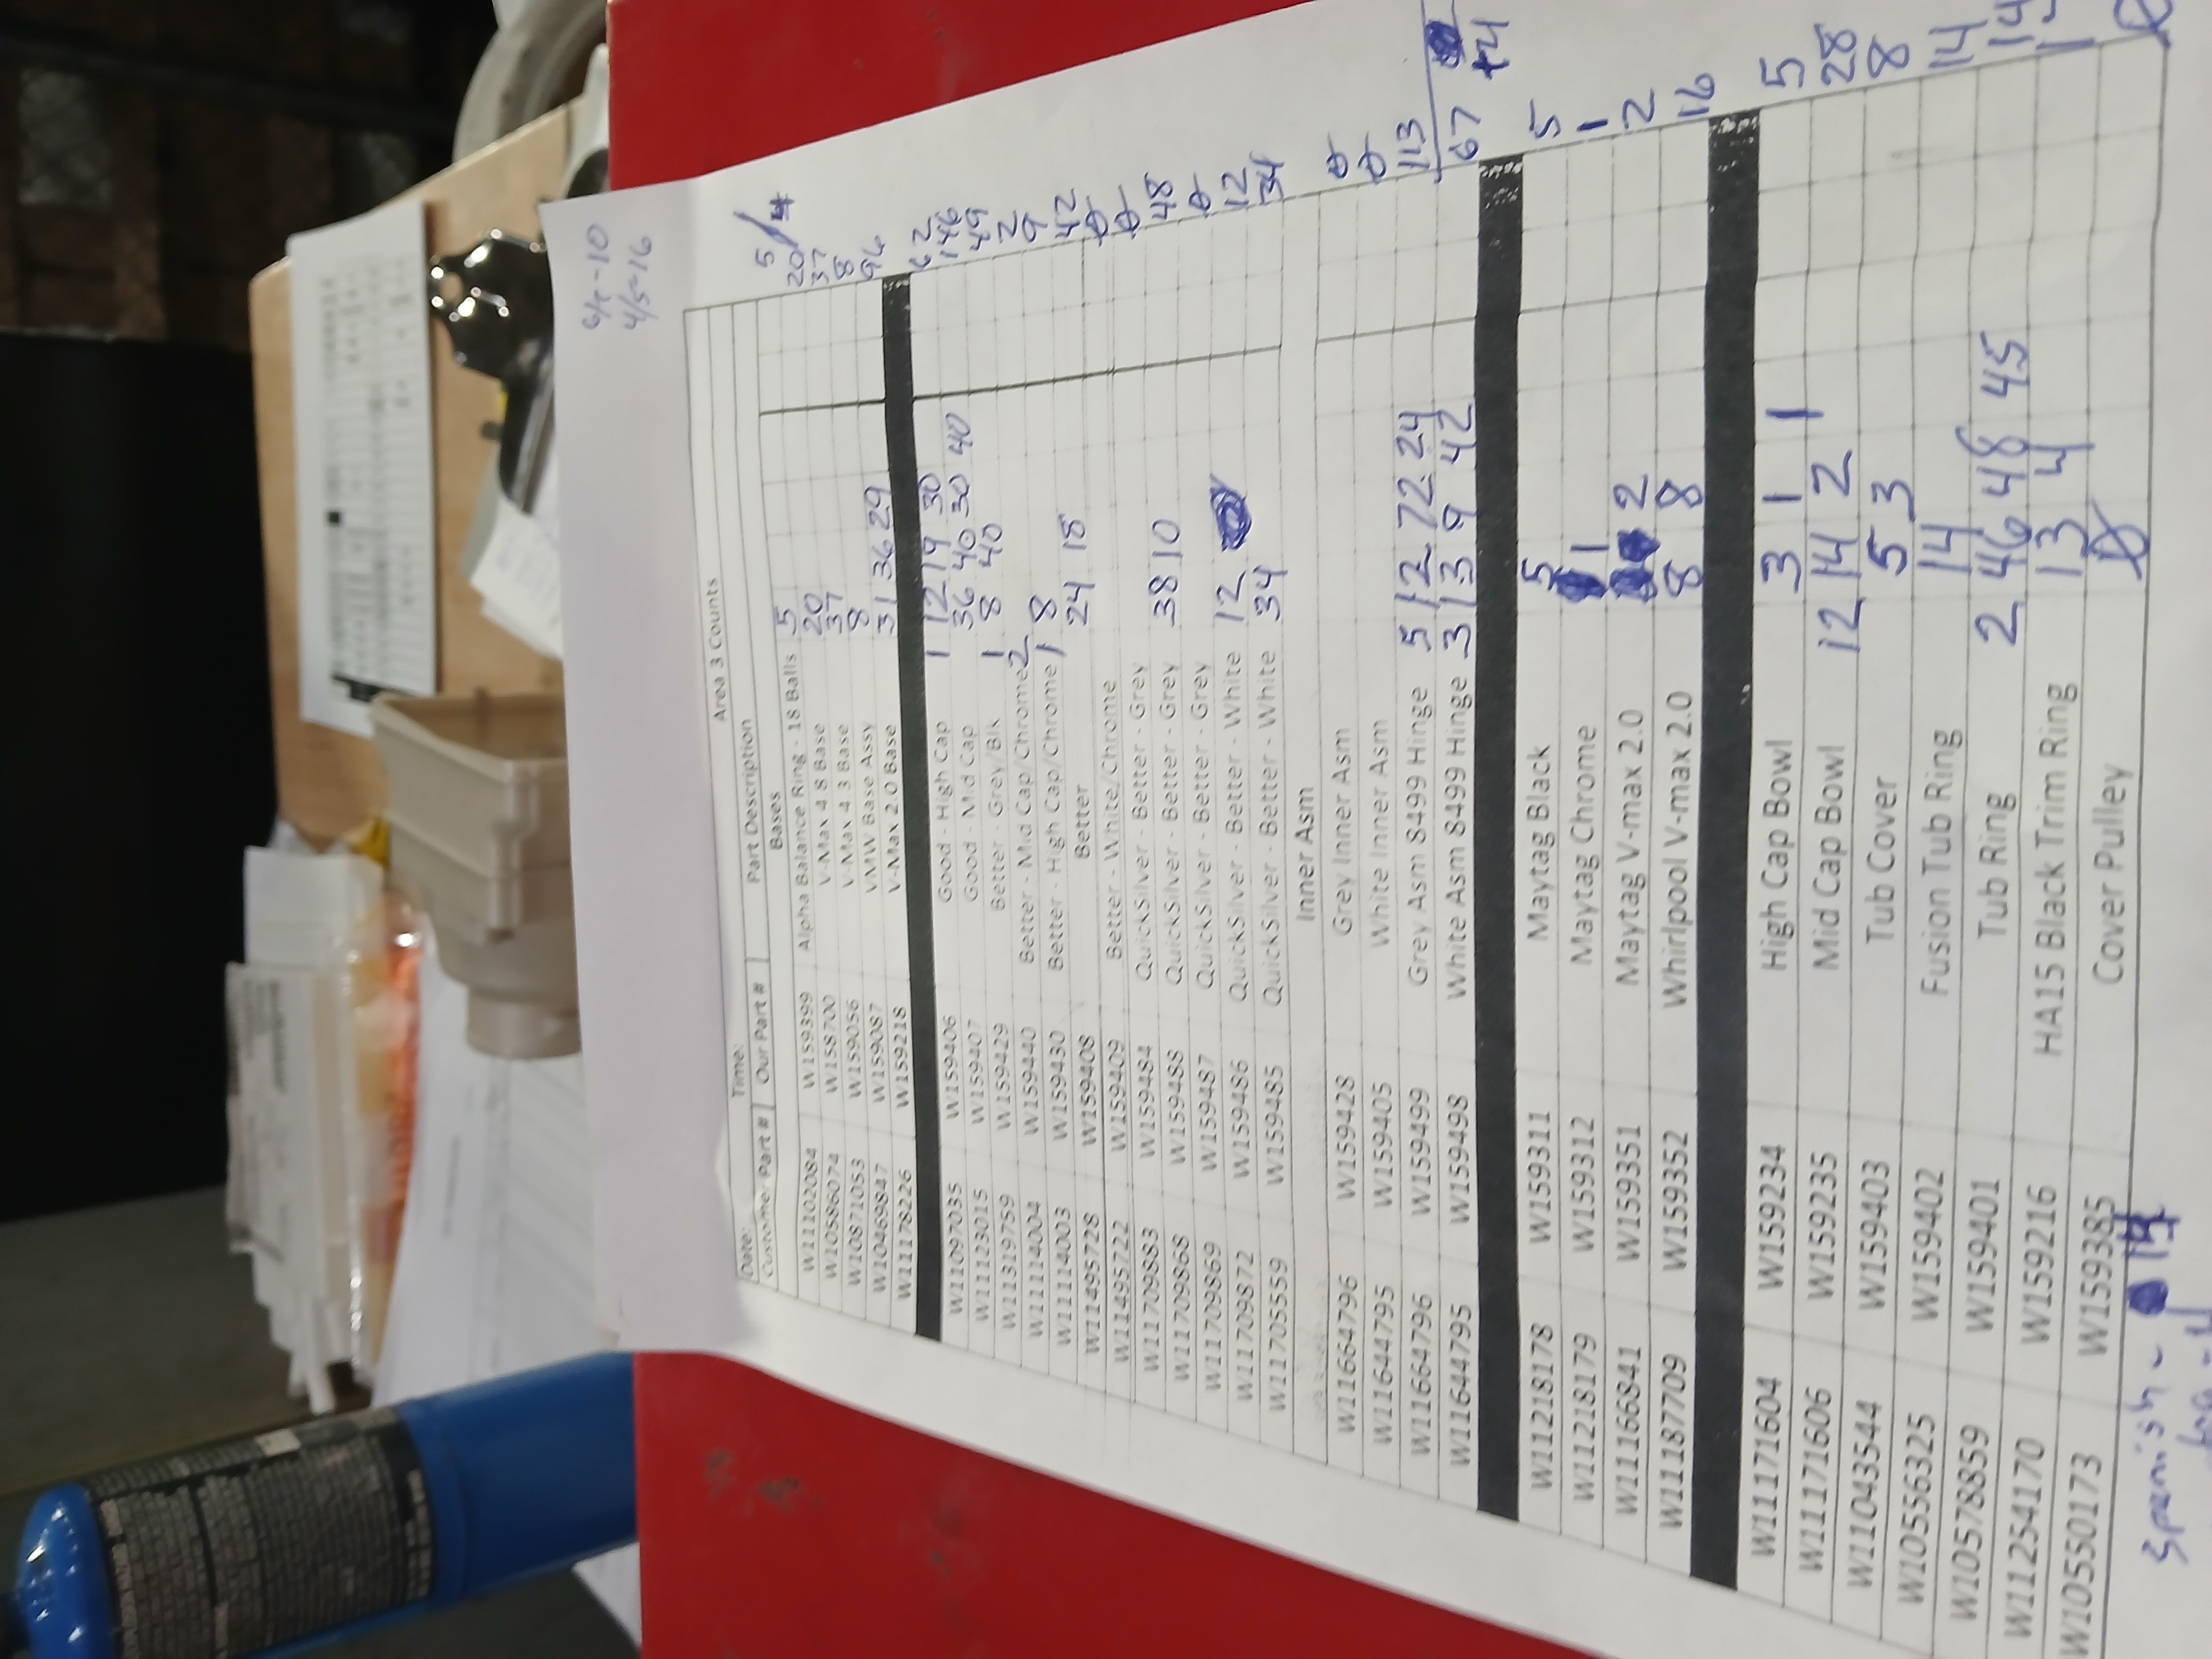 6/5-10
4/5-16
Area 3 Counts
Date: Time:
Customer Part # Our Part # Part Description
Bases 5
W11102084 W159399 Alpha Balance Ring - 18 Balls 5 20
W10586074 W158700 V-Max 4 8 Base 20 37
W10871053 W159056 V-Max 4 3 Base 37 8
W10469847 W159087 VMW Base Assy 8 96
W11178226 W159218 V-Max 2.0 Base 31 36 29
W11097035 W159406 Good - High Cap 1 12 19 30 62
W11123015 W159407 Good - Mid Cap 36 40 30 40 146
W11319759 W159429 Better - Grey/Blk 1 8 40 49
W11114004 W159440 Better - Mid Cap/Chrome 2 2
W11114003 W159430 Better - High Cap/Chrome 1 8 9
W11495728 W159408 Better 24 18 42
W11495722 W159409 Better - White/Chrome 0
W11709883 W159484 QuickSilver - Better - Grey 0
W11709868 W159488 QuickSilver - Better - Grey 38 10 48
W11709869 W159487 QuickSilver - Better - Grey 0
W11709872 W159486 QuickSilver - Better - White 12 12
W11705559 W159485 QuickSilver - Better - White 34 34
Inner Asm
W11664796 W159428 Grey Inner Asm 0
W11644795 W159405 White Inner Asm 0
W11664796 W159499 Grey Asm 8499 Hinge 5 12 72 24 113
W11644795 W159498 White Asm 8499 Hinge 3 13 9 42 67 +41
W11218178 W159311 Maytag Black 5 5
W11218179 W159312 Maytag Chrome 1 1
W11166841 W159351 Maytag V-max 2.0 2 2
W11187709 W159352 Whirlpool V-max 2.0 8 8 16
W11171604 W159234 High Cap Bowl 3 1 1 5
W11171606 W159235 Mid Cap Bowl 12 14 2 28
W11043544 W159403 Tub Cover 5 3 8
W10556325 W159402 Fusion Tub Ring 14 14
W10578859 W159401 Tub Ring 2 46 48 45
W11254170 W159216 HA15 Black Trim Ring 13 4
W10550173 W159385 Cover Pulley 0
Spanish - 14